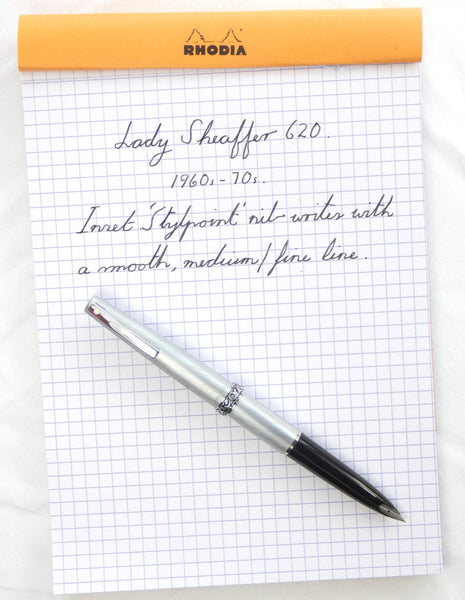 RHODIA
Lady Sheaffer 620.
1960s-70s.
Inset 'Stylpoint' nib writes with
a smooth, medium/fine line.